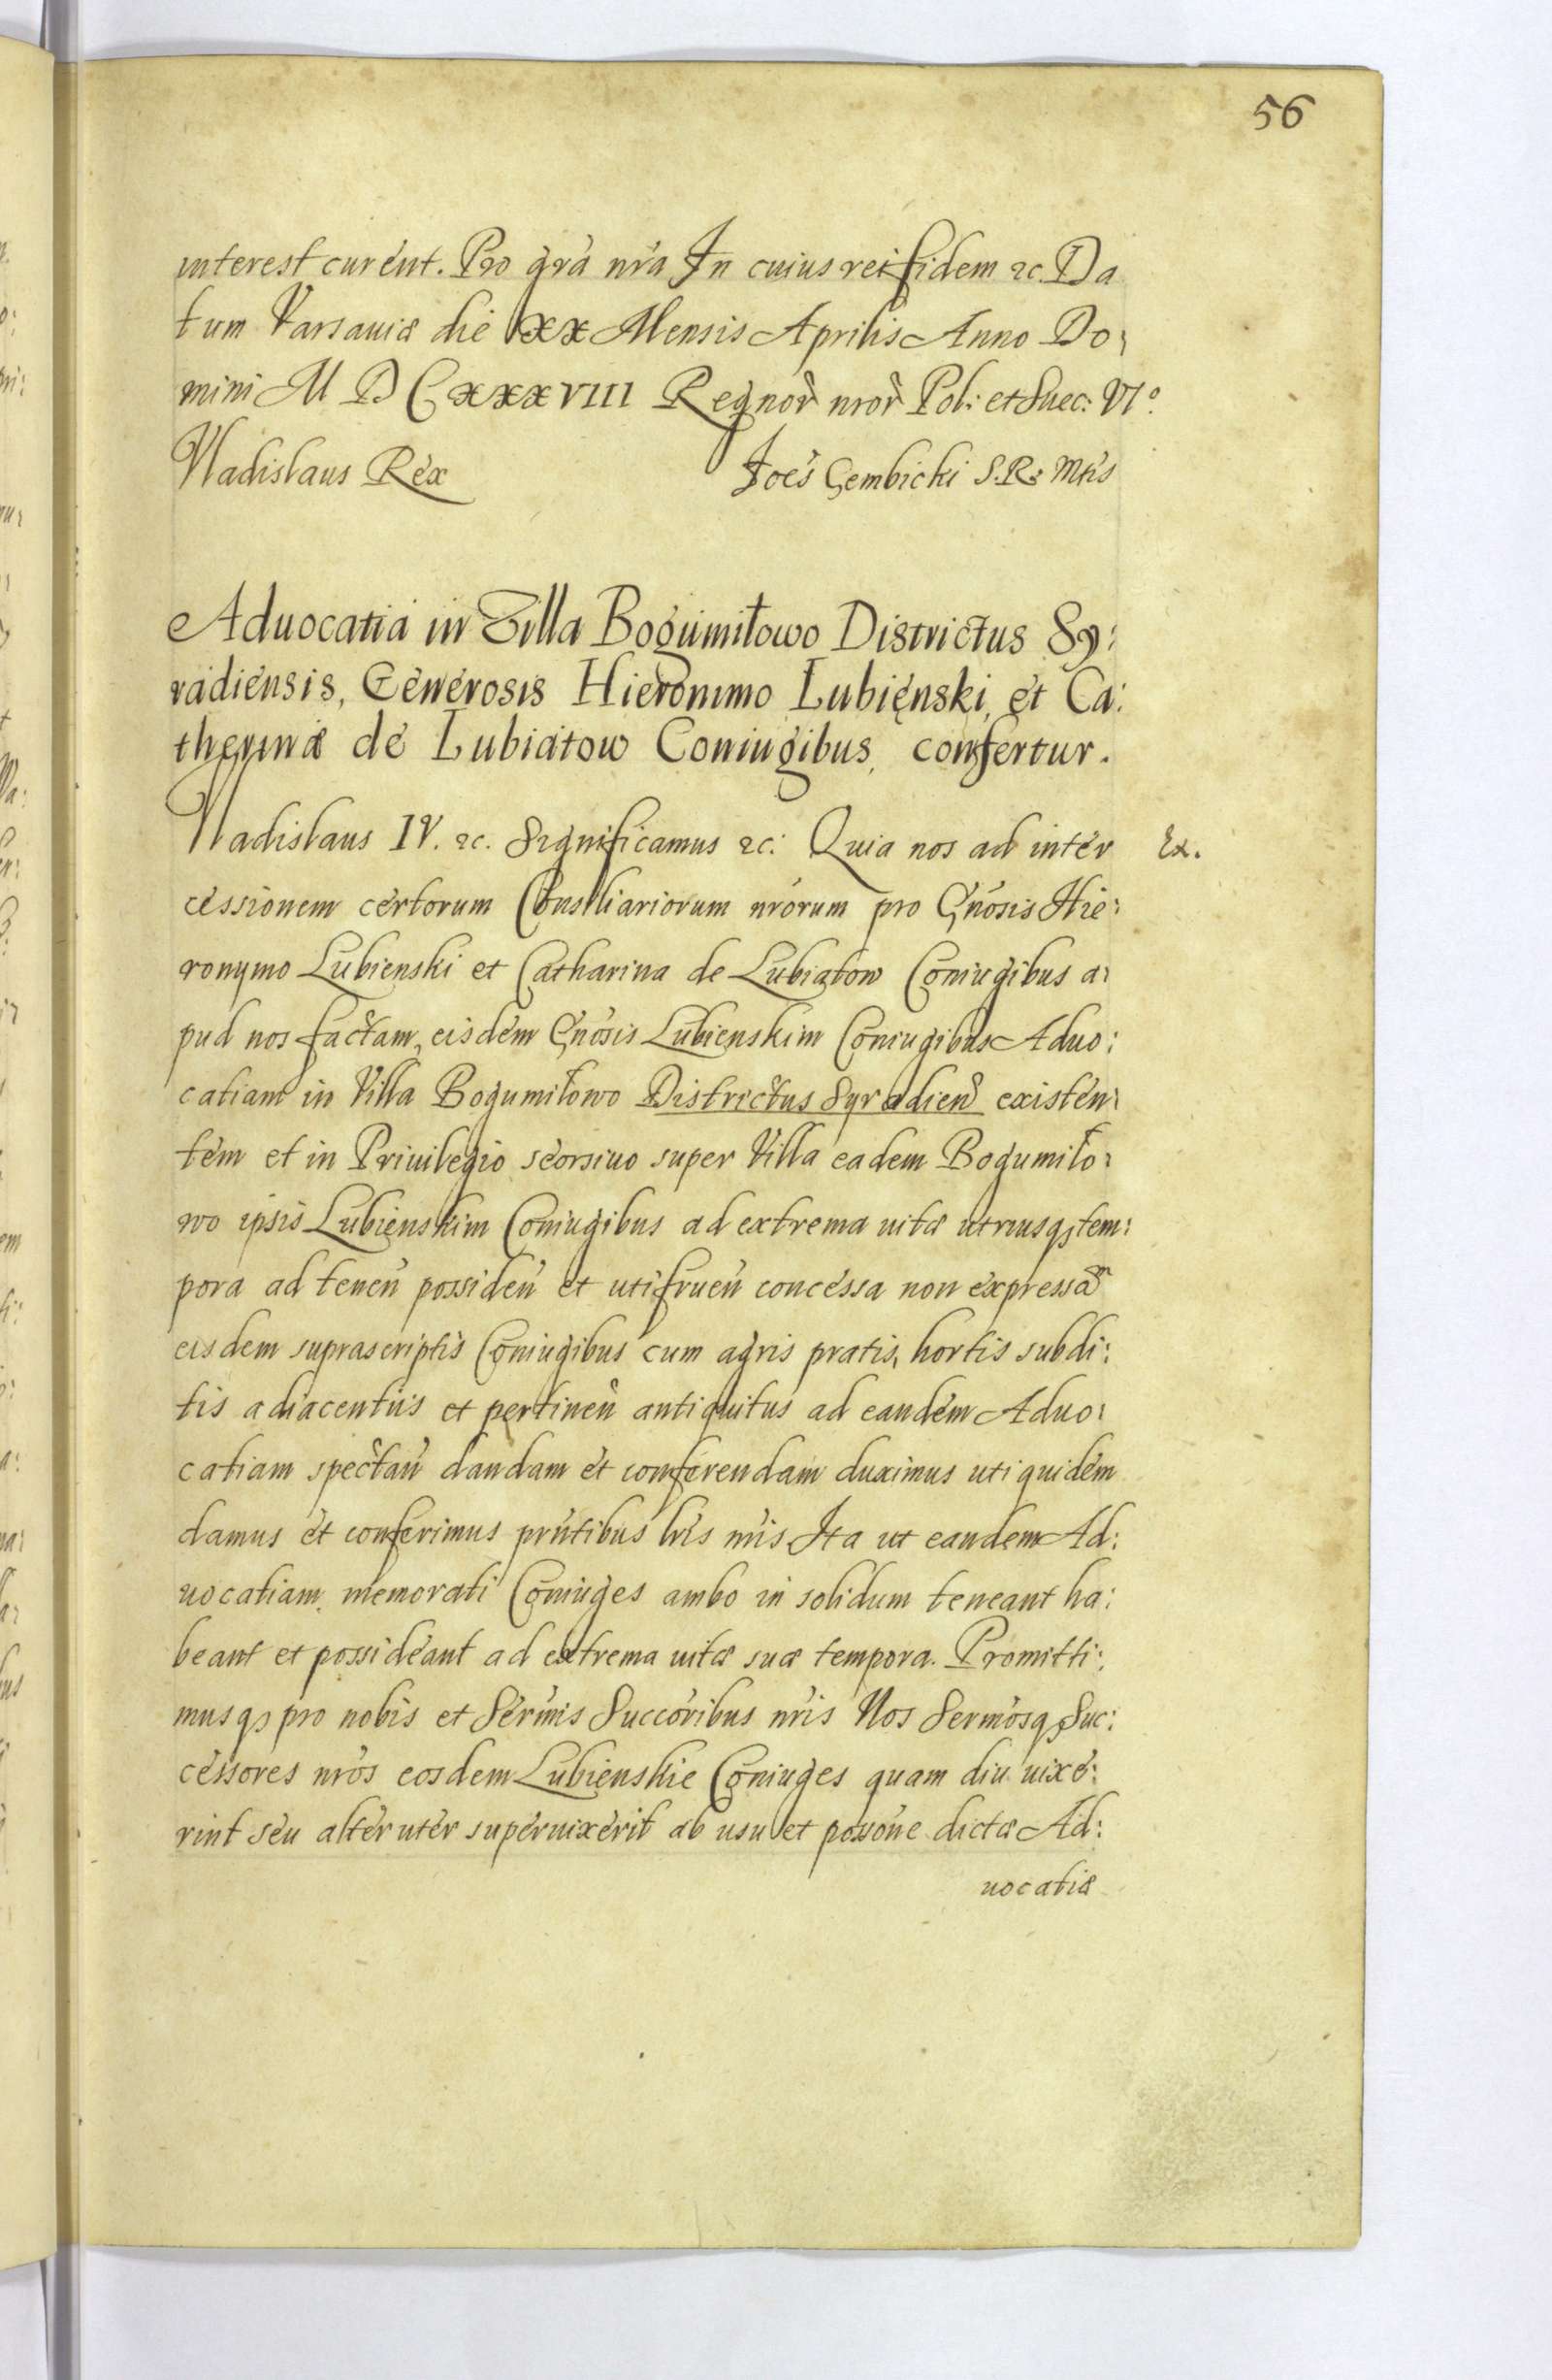 56
interest curent. Pro gra nra In cuius rei fidem &c. Da
tum Varsaviæ die XX Mensis Aprilis Anno Do:
mini M D C XXXVIII Regnor nror Pol: et Suec: VI°
Vladislaus Rex Joes Gembicki S.R: Mtis
Aduocatia in Villa Bogumiłowo Districtus Sy:
radiensis, Generosis Hieronimo Lubięnski, et Ca:
therinæ de Lubiatow Coniugibus, confertur.
Vladislaus IV. &c. Significamus &c: Quia nos ad inter
Ex.
cessionem certorum Consiliariorum nrorum pro Gnosis Hie:
ronymo Lubienski et Catharina de Lubiatow Coniugibus a:
pud nos factam, eisdem Gnosis Lubienskim Coniugibus Aduo:
catiam in Villa Bogumiłowo Districtus Syradien existen:
tem et in Priuilegio seorsiuo super Villa eadem Bogumiło:
wo ipsis Lubienskim Coniugibus ad extrema uitæ utriusq3 tem:
pora ad tenen possiden et utifruen concessa non expressam
eisdem suprascriptis Coniugibus cum agris pratis, hortis subdi:
tis adiacentiis et pertinen antiquitus ad eandem Aduo:
catiam spectan dandam et conferendam duximus uti quidem
damus et conferimus prntibus lris nris Ita ut eandem Ad:
uocatiam memorati Coniuges ambo in solidum teneant ha:
beant et possideant ad extrema uitæ suæ tempora. Promitti:
musq3 pro nobis et Sermis Succoribus nris Nos Sermosq3 Suc:
cessores nros eosdem Lubienskie Coniuges quam diu uixe:
rint seu alteruter superuixerit ab usu et possone dictæ Ad:
uocatiæ